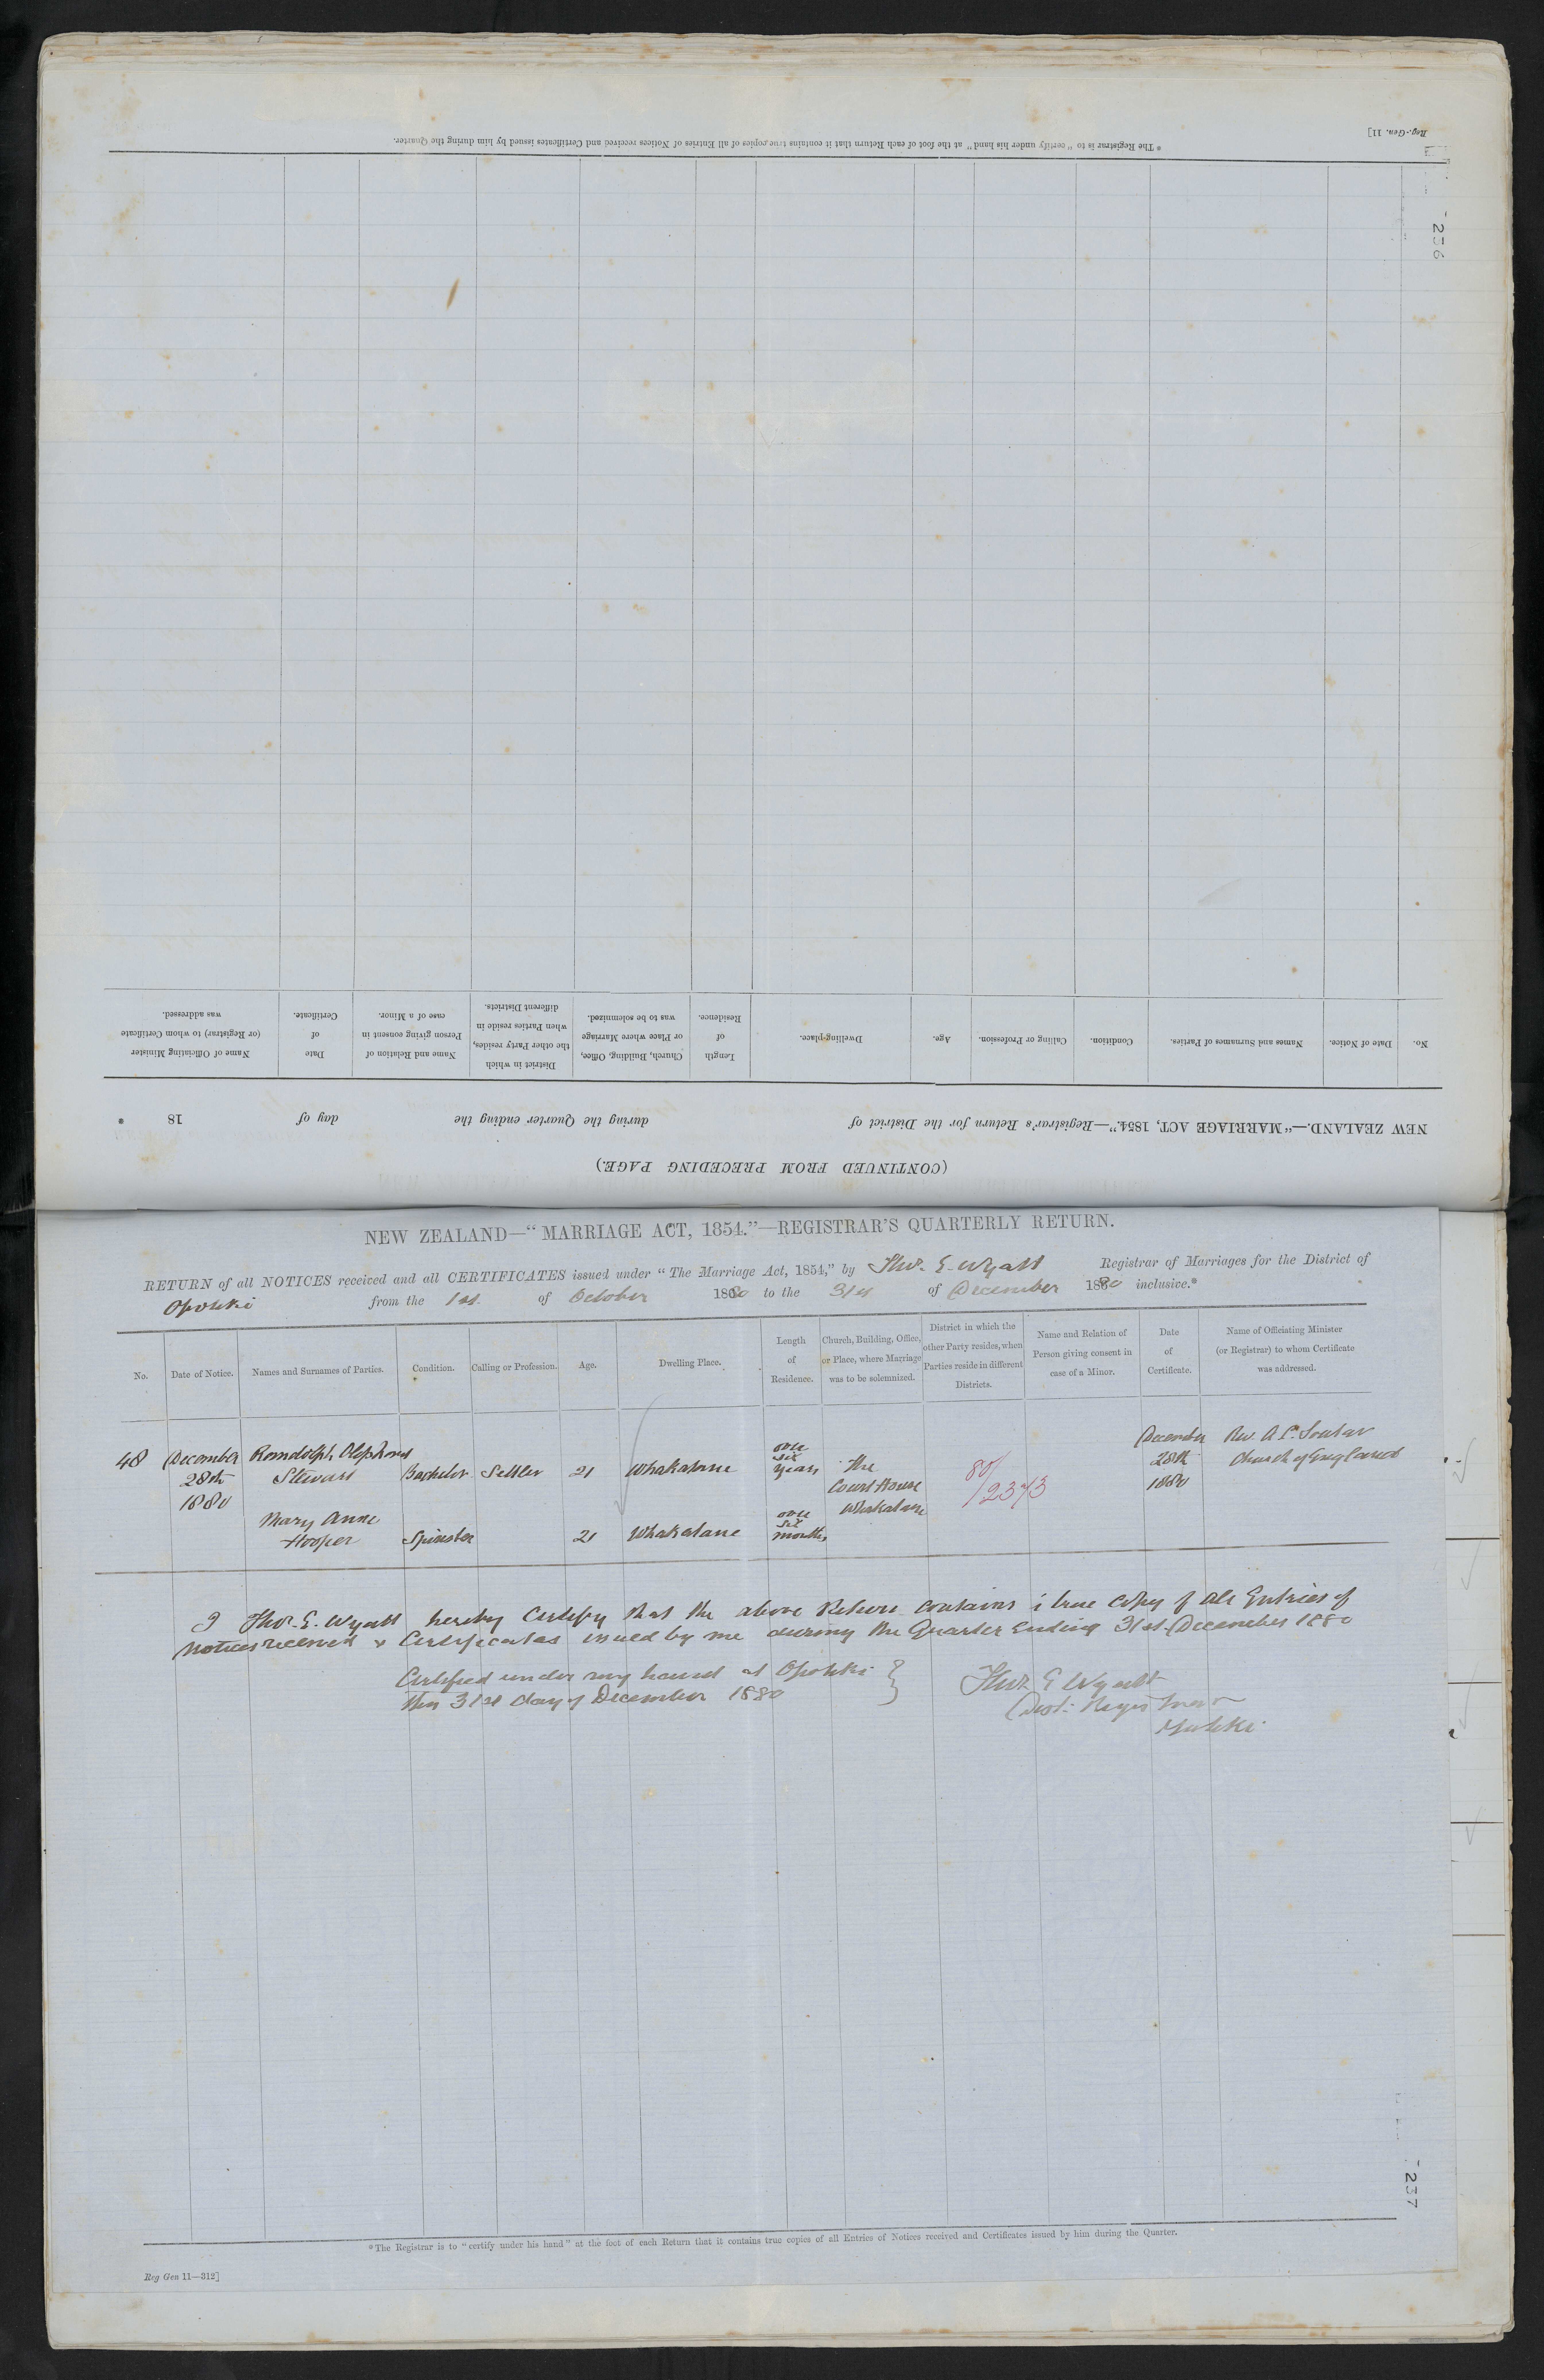 Reg.-Gen. 11]
* The Registrar is to "certify under his hand" at the foot of each Return that it contains true copies of all Entries of Notices received and Certificates issued by him during the Quarter.
236
(CONTINUED FROM PRECEDING PAGE.)
NEW ZEALAND.—"MARRIAGE ACT, 1854."—Registrar's Return for the District of during the Quarter ending the day of 18 .
No.
Date of Notice.
Names and Surnames of Parties.
Condition.
Calling or Profession.
Age.
Dwelling-place.
Length
of
Residence.
Church, Building, Office,
or Place where Marriage
was to be solemnized.
District in which
the other Party resides,
when Parties reside in
different Districts.
Name and Relation of
Person giving consent in
case of a Minor.
Date
of
Certificate.
Name of Officiating Minister
(or Registrar) to whom Certificate
was addressed.
NEW ZEALAND—"MARRIAGE ACT, 1854."—REGISTRAR'S QUARTERLY RETURN.
RETURN of all NOTICES received and all CERTIFICATES issued under "The Marriage Act, 1854," by Thos. E. Wyatt Registrar of Marriages for the District of
Opotiki from the 1st of October 1880 to the 31st of December 1880 inclusive.*
No.
Date of Notice.
Names and Surnames of Parties.
Condition.
Calling or Profession.
Age.
Dwelling Place.
Length
of
Residence.
Church, Building, Office,
or Place, where Marriage
was to be solemnized.
District in which the
other Party resides, when
Parties reside in different
Districts.
Name and Relation of
Person giving consent in
case of a Minor.
Date
of
Certificate.
Name of Officiating Minister
(or Registrar) to whom Certificate
was addressed.
48
December
28th
1880
Stewart
Bachelor
Settler
21
Whakatane
over
six
years
The
Court House
Whakatane
80/
/2373
December
28th
1880
Rev. A. C. Soutar
Church of England
Mary Anne
Hooper
Spinster
21
Whakatane
over
six
months
I Thos. E. Wyatt hereby Certify that the above Return contains a true copy of all Entries of
Notices received & Certificates issued by me during the Quarter Ending 31st December 1880
Certified under my hand at Opotiki }
this 31st day of December 1880
Thos E Wyatt
Dist: Registrar
Opotiki
237
*The Registrar is to "certify under his hand" at the foot of each Return that it contains true copies of all Entries of Notices received and Certificates issued by him during the Quarter.
Reg Gen 11—312]